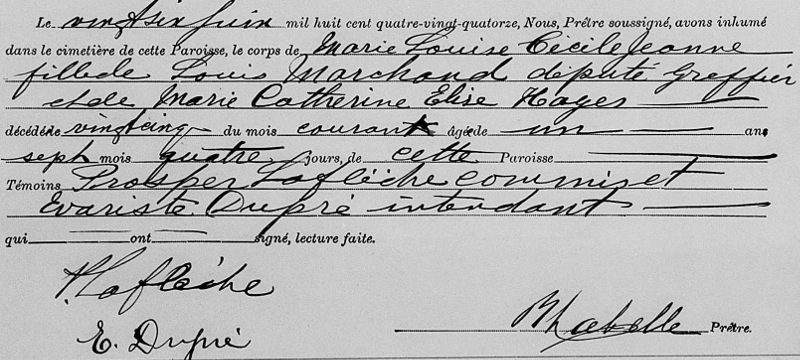 Le vingtsix Juin mil huit cent quatre-vingt-quatorze, Nous, Prêtre soussigné, avons inhumé
dans le cimetière de cette Paroisse, le corps de Marie Louise Cécile Jeanne
fille de Louis Marchand député Greffier
et de Marie Catherine Elise Hayes
décédé le vingtcinq du mois courant âgée de un an
sept mois quatre jours, de cette Paroisse
Témoins Prosper Laflèche commis et
Evariste Dupré intendant
qui ont signé, lecture faite.
P. Laflèche
E. Dupré
Prêtre.